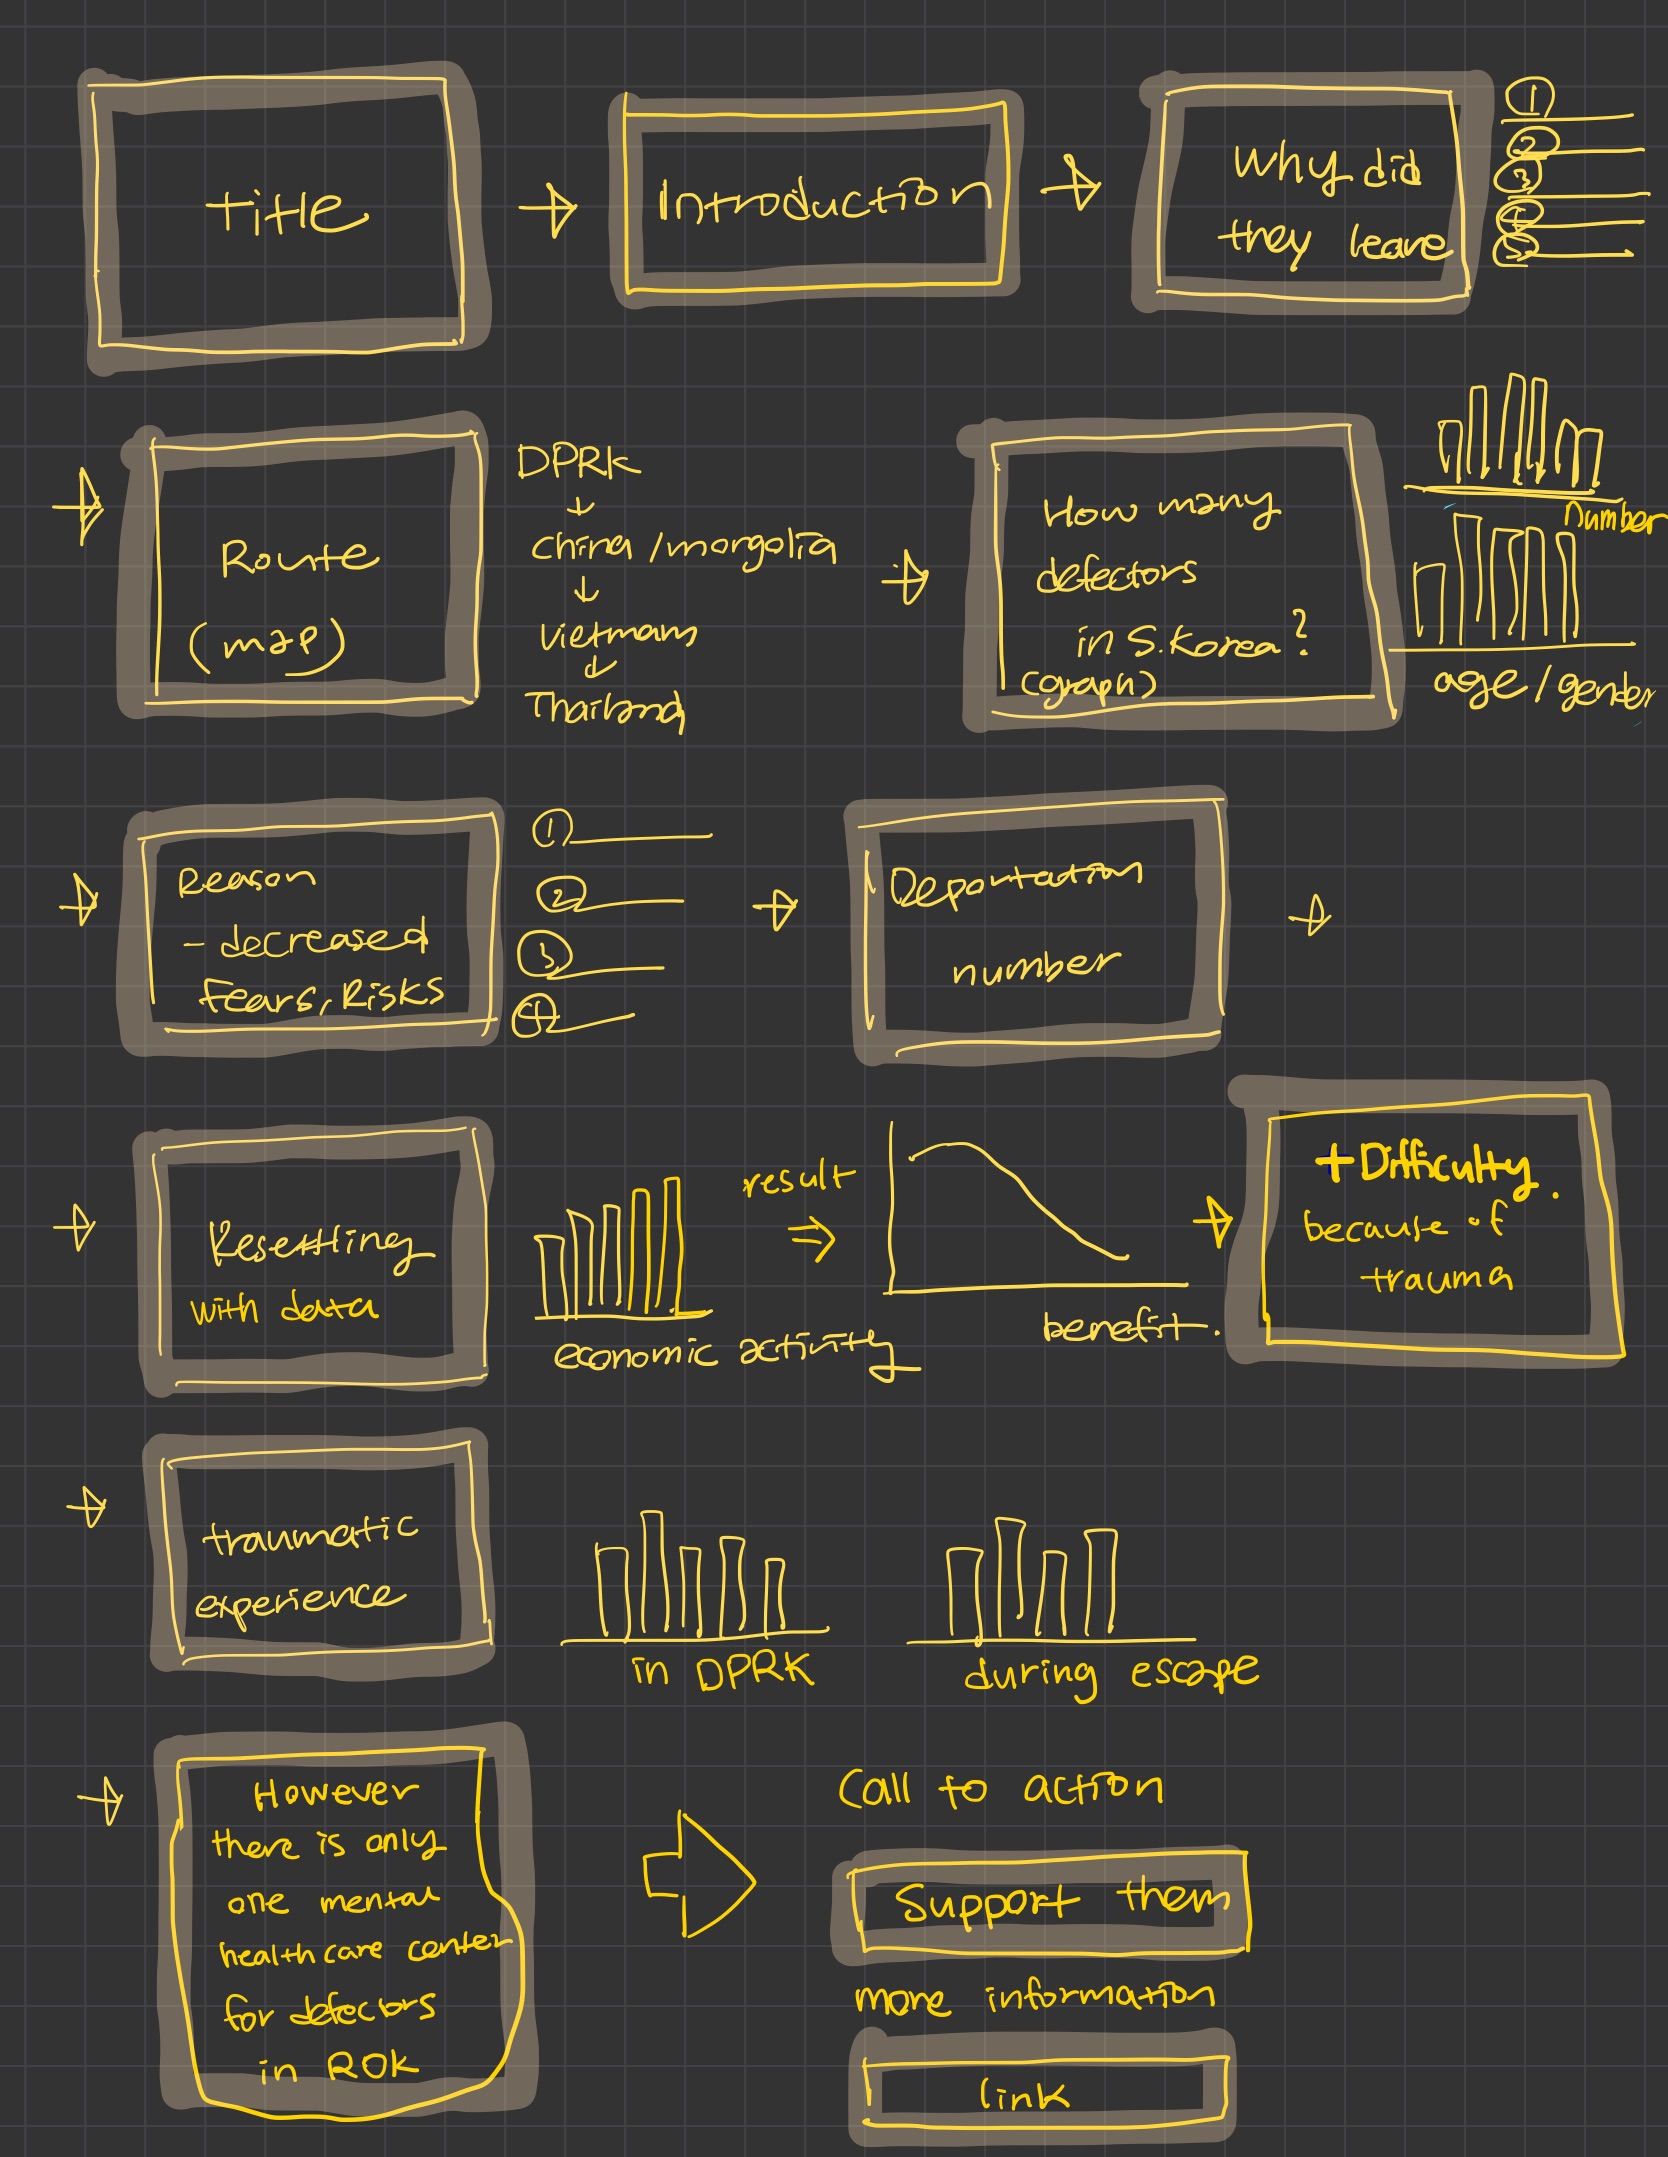 Title
Introduction
Why did
they leave
1
2
3
4
5
Route
(map)
DPRK
China / mongolia
Vietnam
Thailand
How many
defectors
in S. Korea?
(graph)
number
age / gender
Reason
- decreased
Fears, Risks
1
2
3
4
Deportation
number
Resettling
with data
economic activity
result
benefit.
+ Difficulty.
because of
trauma
traumatic
experience
in DPRK
during escape
However
there is only
one mental
healthcare center
for defectors
in ROK
Call to action
Support them
more information
link